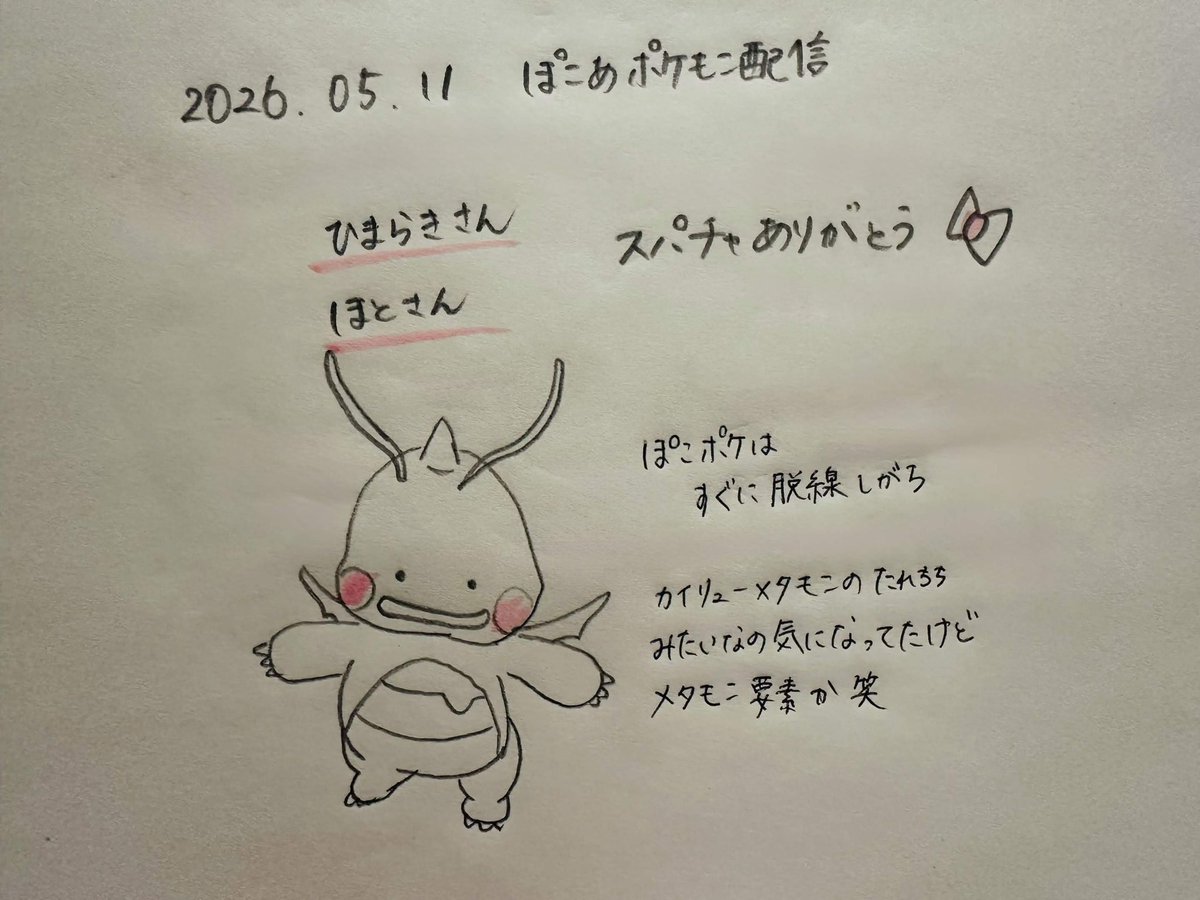 2026.05.11 ぽこあポケモン配信
ひまらきさん
ほとさん
スパチャありがとう
ぽこポケは
すぐに脱線しがち
カイリューメタモンのたれちち
みたいなの気になってたけど
メタモン要素か笑